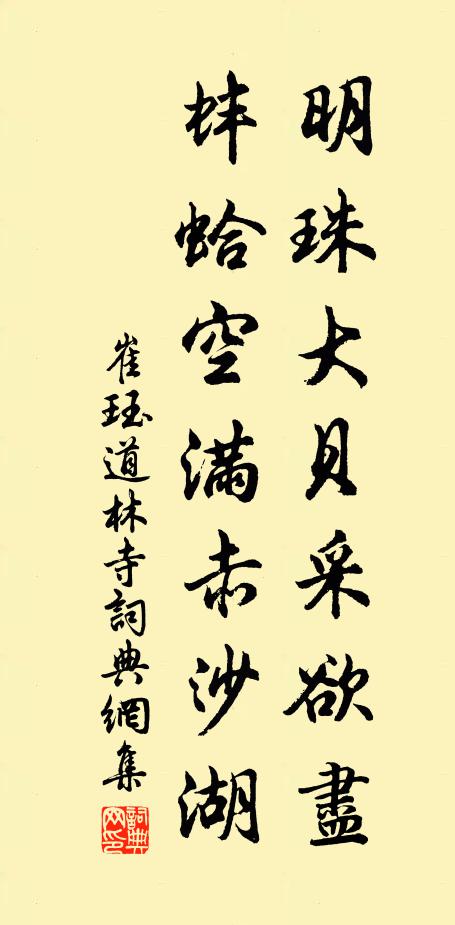 明珠大貝采欲盡
蚌蛤空滿赤沙湖
崔珏道林寺詞典網集
詞典網印